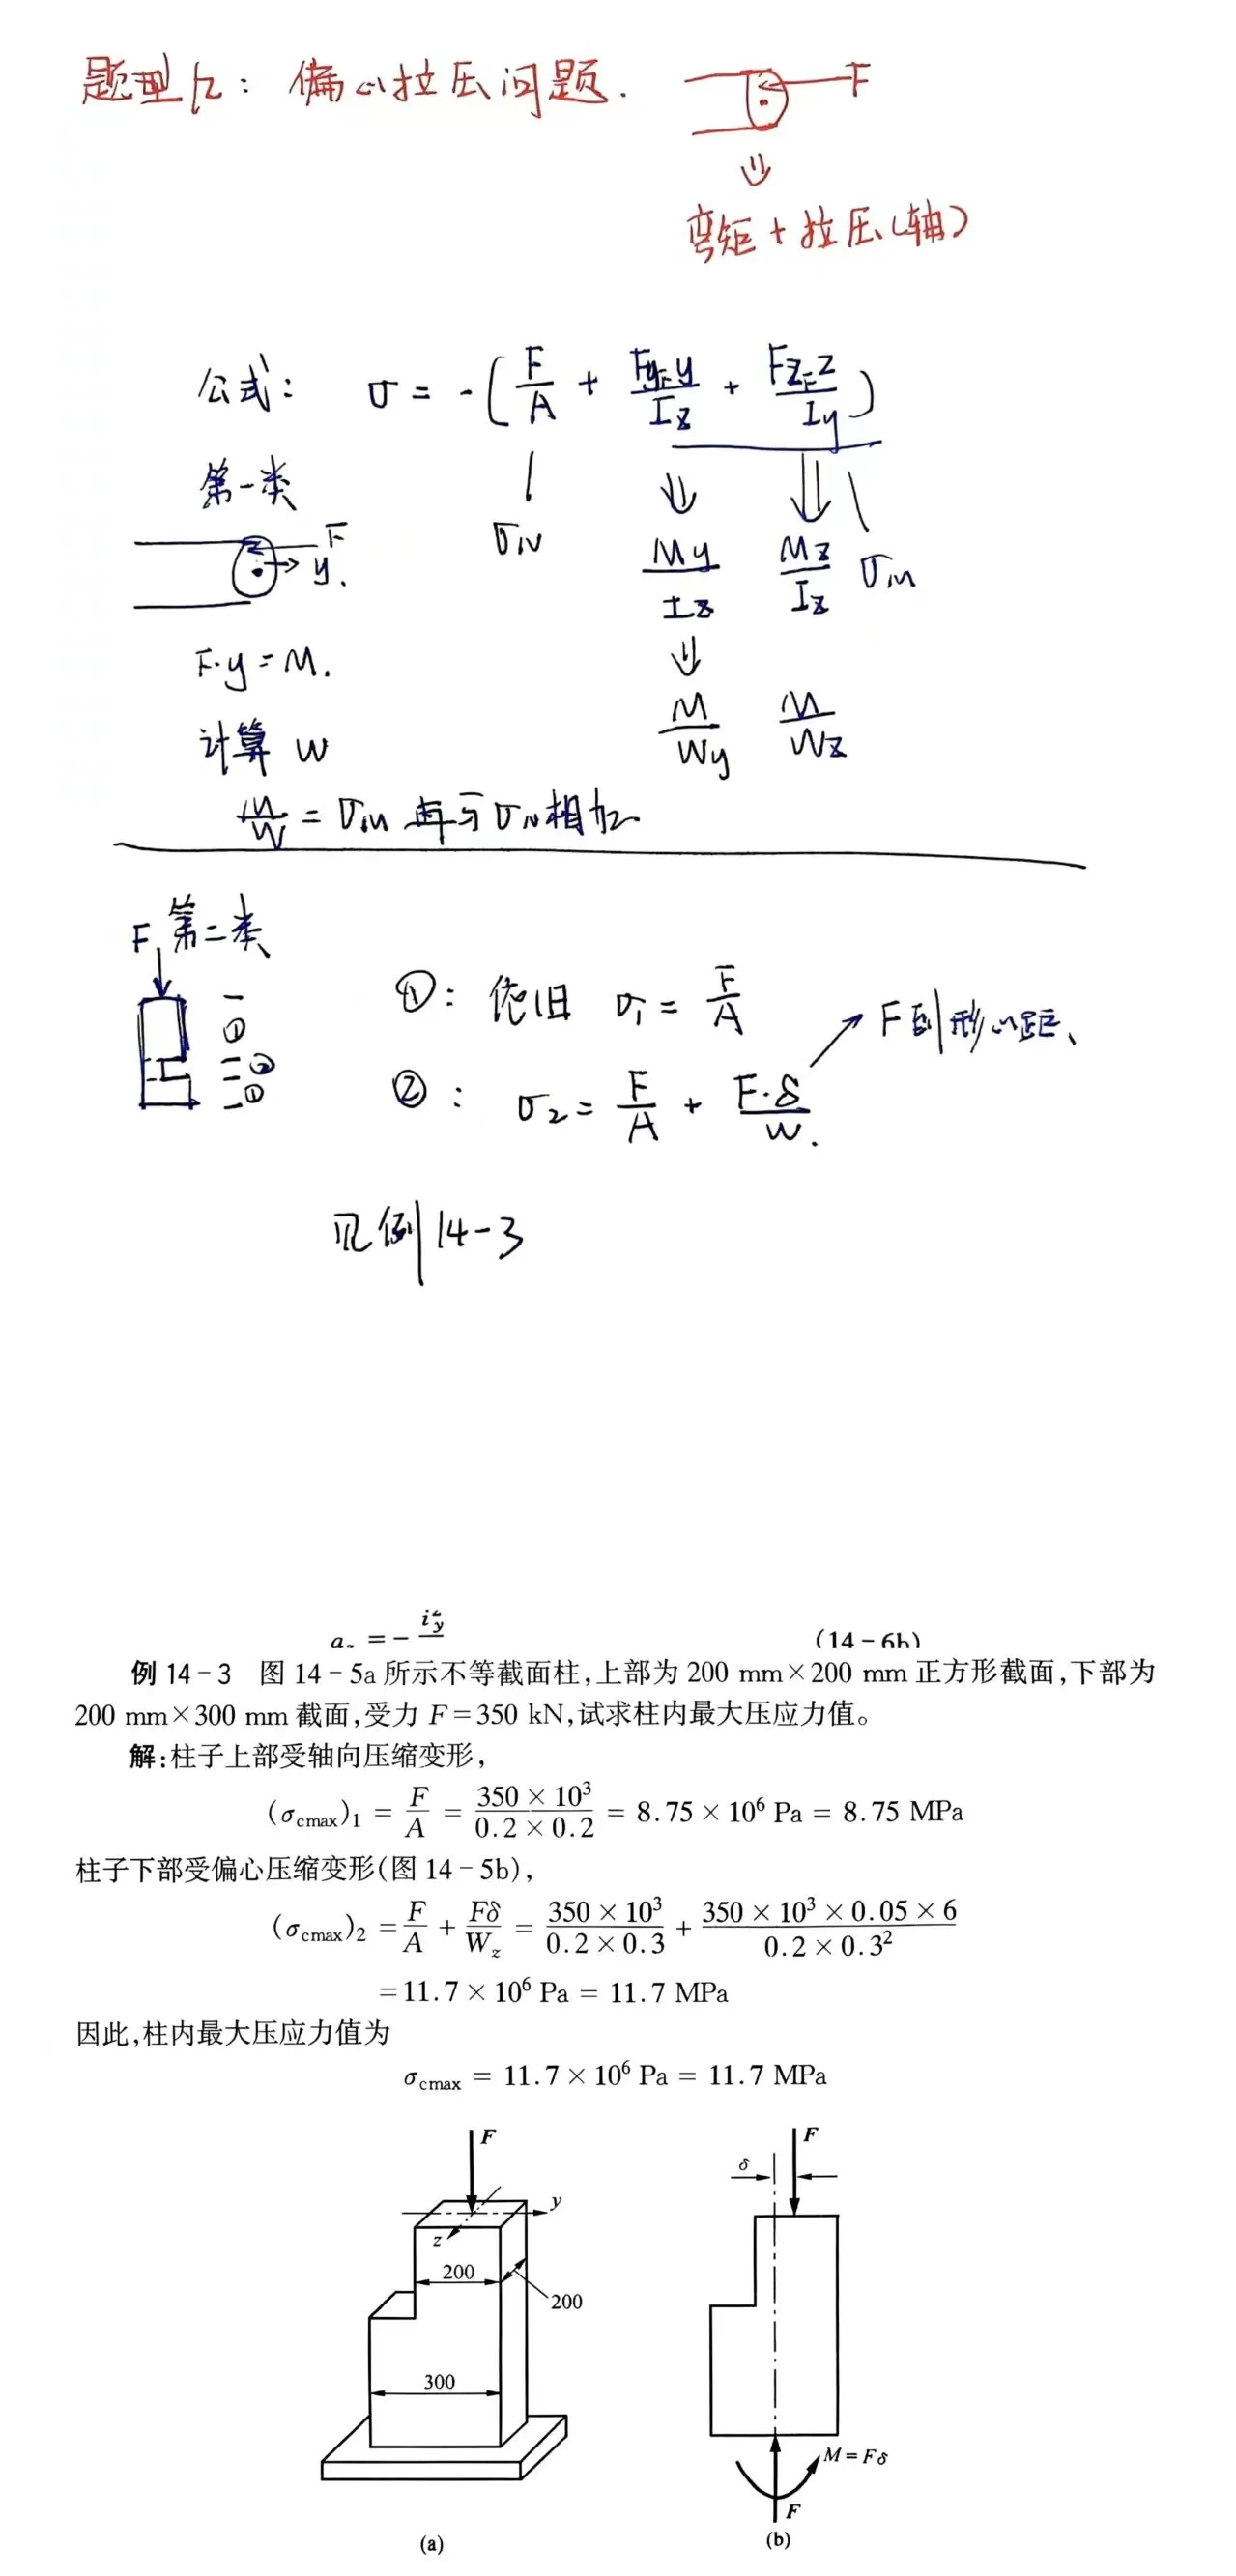 题型六: 偏心拉压问题.
F
弯矩+拉压(轴)
公式: σ = -(F/A + Fy_F y/I_z + Fz_F z/I_y)
第一类
σ_N
My/I_z Mz/I_z σ_M
F
y.
F·y=M.
计算 W
M/W_y M/W_z
M/W = σ_M 再与σ_N相加
F 第二类
①
②
①
①: 依旧 σ₁ = F/A
F到形心距
②: σ₂ = F/A + F·δ/W.
见例14-3
(14-6b)
例 14-3 图 14-5a 所示不等截面柱,上部为 200 mm×200 mm 正方形截面,下部为
200 mm×300 mm 截面,受力 F=350 kN,试求柱内最大压应力值。
解:柱子上部受轴向压缩变形,
(σ_cmax)₁ = F/A = 350×10³/0.2×0.2 = 8.75×10⁶ Pa = 8.75 MPa
柱子下部受偏心压缩变形(图 14-5b),
(σ_cmax)₂ = F/A + Fδ/W_z = 350×10³/0.2×0.3 + 350×10³×0.05×6/0.2×0.3²
=11.7×10⁶ Pa = 11.7 MPa
因此,柱内最大压应力值为
σ_cmax = 11.7×10⁶ Pa = 11.7 MPa
F
y
z
200
200
300
(a)
F
δ
M=Fδ
F
(b)